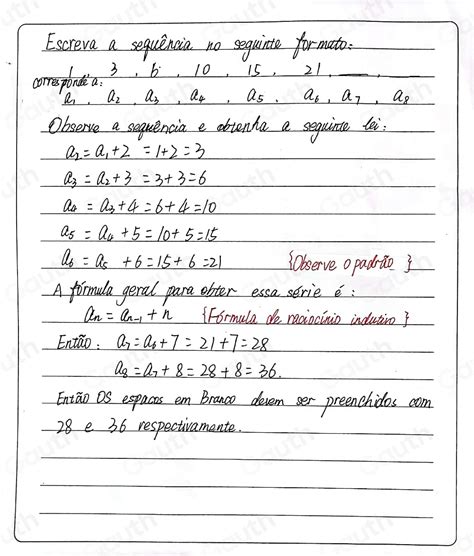 Escreva a sequência no seguinte formato:
1, 3, 6, 10, 15, 21, __, __
corresponde a:
a₁, a₂, a₃, a₄, a₅, a₆, a₇, a₈
Observe a sequência e obtenha a seguinte lei:
a₂ = a₁ + 2 = 1+2 = 3
a₃ = a₂ + 3 = 3+3 = 6
a₄ = a₃ + 4 = 6+4 = 10
a₅ = a₄ + 5 = 10+5 = 15
a₆ = a₅ + 6 = 15+6 = 21 {Observe o padrão}
A fórmula geral para obter essa série é:
aₙ = aₙ₋₁ + n {Fórmula de raciocínio indutivo}
Então: a₇ = a₆ + 7 = 21+7 = 28
a₈ = a₇ + 8 = 28+8 = 36.
Então OS espacos em Branco devem ser preenchidos com
28 e 36 respectivamente.